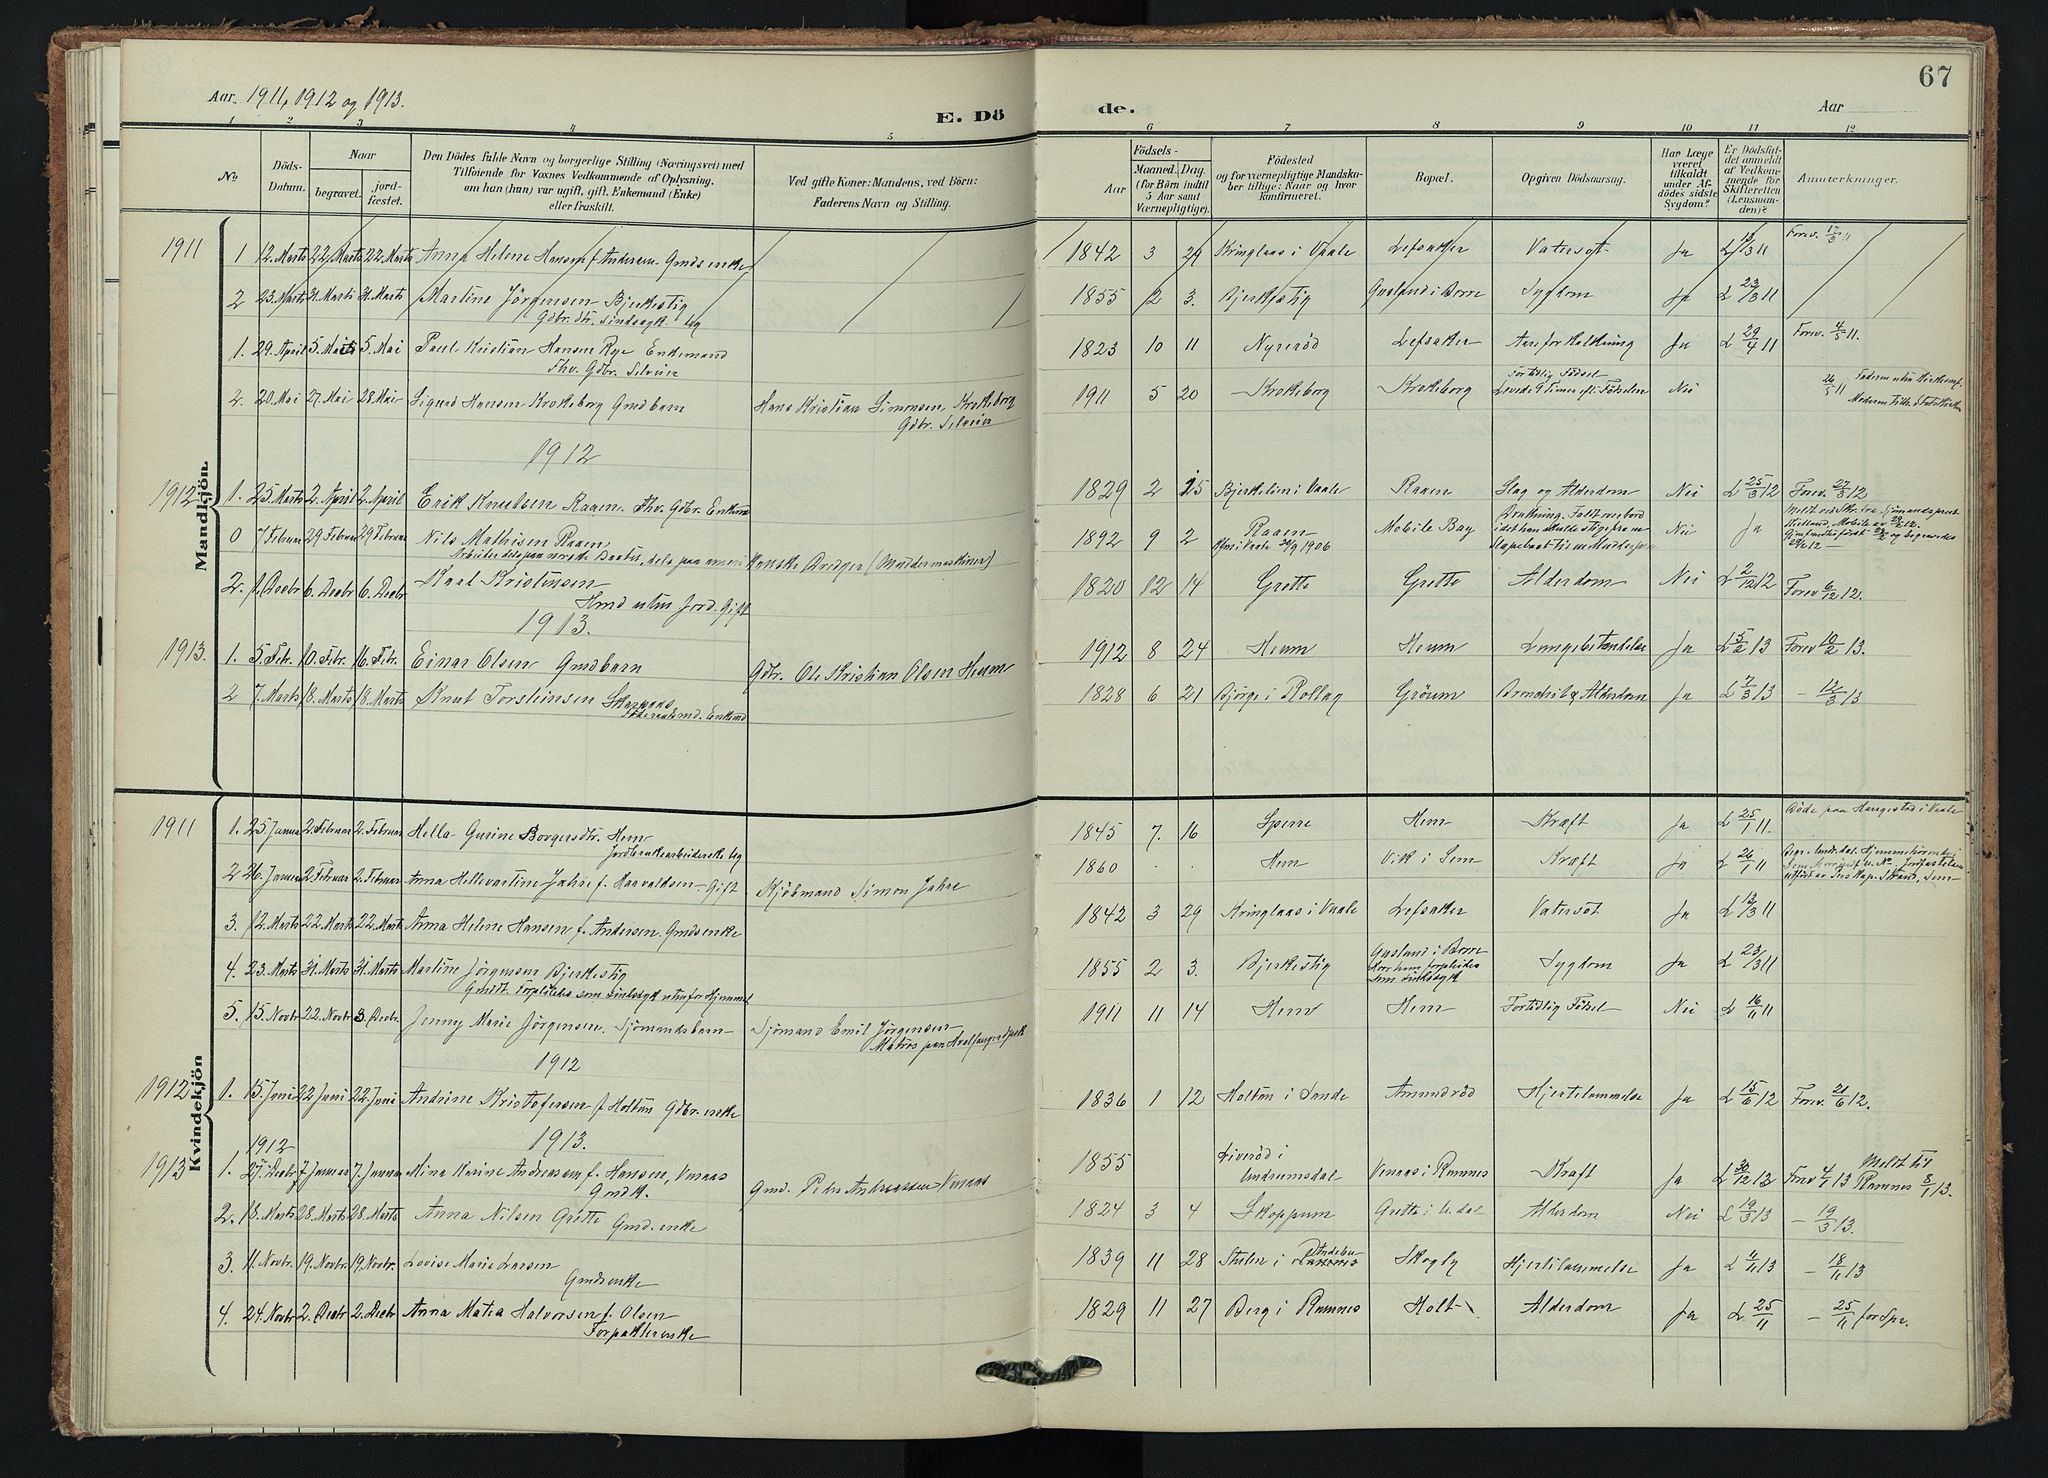 67
Aar. 1911, 1912 og 1913.
E. Dö de.
Aar
1 2 3 4 5 6 7 8 9 10 11 12
No
Döds-Datum.
Naar
begravet.
jord-fæstet.
Den Dödes fulde Navn og borgerlige Stilling (Næringsvei) med
Tilföiende for Voxnes Vedkommende af Oplysning,
om han (hun) var ugift, gift, Enkemand (Enke)
eller fraskilt.
Ved gifte Koner: Mandens, ved Börn:
Faderens Navn og Stilling.
Födsels-
Aar
Maaned. Dag.
(for Börn indtil
5 Aar samt
Værnepligtige).
Födested
og for værnepligtige Mandska-
ber tillige: Naar og hvor
konfirmeret.
Bopæl.
Opgiven Dödsaarsag.
Har Læge
været
tilkaldt
under Af-
dödes sidste
Sygdom?
Er Dödsfal-
det anmeldt
af Vedkom-
mende for
Skifteretten
(Lensman-
den)?
Anmærkninger.
Mandkjön.
1911 1 12. Marts 22. Marts 22. Marts Anna Helene Hansen f. Andersen Gmdsenke 1842 3 29 Kringlaas i Vaale Lefsaker Vatersot Ja L 13/3 11 Forev. 17/3 11
2 23. Marts 31. Marts 31. Marts Martine Jörgensen Bjerkestig 1855 2 3. Bjerkestig Guslund i Borre Sygdom Ja L 23/3 11
Gdbr. dtr. Sindssyk. Ug
1. 29. April 5. Mai 5. Mai Paul Kristian Hansen Rye Enkemand 1823 10 11 Nyrerød Lefsaker Aareforkalkning Ja L 29/4 11 Forev. 4/5 11.
Fhv. Gdbr. Selveier
2. 20. Mai 27. Mai 28. Mai Sigurd Hansen Krokeborg Gmdbarn Hans Kristian Simonsen Krokeborg 1911 5 20 Krokeborg Krokeborg Fortidlig Födsel Levede 9 Timer eft. Födselen Nei 26/5 11
Gdbr. Selveier
1912
1912 1. 25. Marts 2. April 2. April Erik Knudsen Raaen. Fhv. Gdbr. Enkemd 1829 2 15 Bjerkelien i Vaale Raaen Slag og Alderdom Nei L 25/3 12 Forev. 27/3 12
0 7 Februar 29 Februar 29 Februar Nils Mathisen Raaen 1892 9 2 Raaen Mobile Bay Nei Ja
Arbeider dels paa norske Baater, dels paa amerikanske Dredger (Muddermaskiner)
2. 1. Decbr 6. Decbr 6. Decbr Karl Kristensen 1820 12 14 Grette Grette Alderdom Nei L 2/12 12 Forev 6/12 12.
Hmd uten Jord. Gift
1913.
1913. 1. 5. Febr. 10. Febr. 16. Febr. Einar Olsen Gmdbarn Gdbr. Ole Kristian Olsen Heum 1912 8 24 Heum Heum Lungebetændelse Ja L 5/2 13 Forev 10/2 13.
2 7. Marts 18. Marts 18. Marts Knut Torsteinsen 1828 6 21 Bjørge i Rollag Grorum Bronchit & Alderdom Ja L 7/3 13 – 12/3 13
Kvindekjön
1911 1. 25. Januar 2. Februar 2. Februar Hella Gurine Borgersdtr. Hem 1845 7. 16 Sperre Hem Kræft Ja L 25/1 11. Døde paa Haugestad i Vaale
Jordbruksarbeiderske Ug
2 26. Januar 2. Februar 2. Februar Anna Hellevartine Jahre f. Haavaldsen – Gift Kjöbmand Simon Jahre 1860 Hem Vik i Sem Kræft Ja L 26/1 11
3. 12. Marts 22. Marts 22. Marts Anna Helene Hansen f. Andersen. Gmdsenke 1842 3 29 Kringlaas i Vaale Lefsaker Vatersöt Ja L 13/3 11
4. 23. Marts 31. Marts 31. Marts Martine Jörgensen Bjerkestig 1855 2 3. Bjerkestig Guslund i Borre Hvor hun forpleiedes som sindssyk Sygdom Ja L 23/3 11
Gmdt. Forpleiedes som sindssyk utenfor Hjemmet
5. 15. Novbr 22. Novbr 3. Decbr. Jenny Marie Jörgensen. Sjömandsbarn Sjömand Emil Jörgensen 1911 11 14 Hem Hem Fortidlig Födsel Nei L 16/11 11
Matros paa Hvalfanger
1912
1912 1. 15. Juni 22 Juni 22. Juni Andrine Kristofersen f. Holtan Gdbr.enke 1836 1 12 Holtan i Sande Amundröd Hjertelammelse Ja L 15/6 12 Forev. 21/6 12.
1912 1913.
1913 1. 27. Decbr 7 Januar 7. Januar Mina Karine Andreassen f. Hansen, Venaas Gmd. Peder Andreassen Venaas 1855 Liveröd i Undrumsdal Venaas i Ramnes Kræft Ja L 30/12 12 Forev 4/1 13 Meldt til Ramnes 8/1 13.
Gmdk.
2. 13. Marts 28. Marts 28. Marts Anna Nilsen Grette Gmd.enke 1824 3 4 Skoppum Grette i U.dal Alderdom Nei L 19/3 13 – 19/3 13.
3. 11. Novbr. 19. Novbr. 19. Novbr. Lovise Marie Larsen 1839 11 28 Stulen i Andebu Skogly Hjertelammelse Ja L 11/11 13 – 18/11 13
Gmdsenke
4. 24. Novbr 2. Decbr 2. Decbr Anna Matea Halvorsen f. Olsen 1829 11 27 Berg i Ramnes Holt Alderdom Ja L 25/11 – 25/11 for Spr.
Forpakterenke